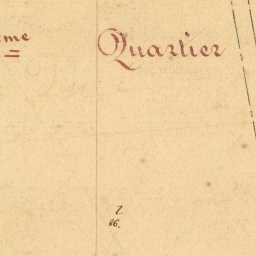 me Quartier
7.
86.